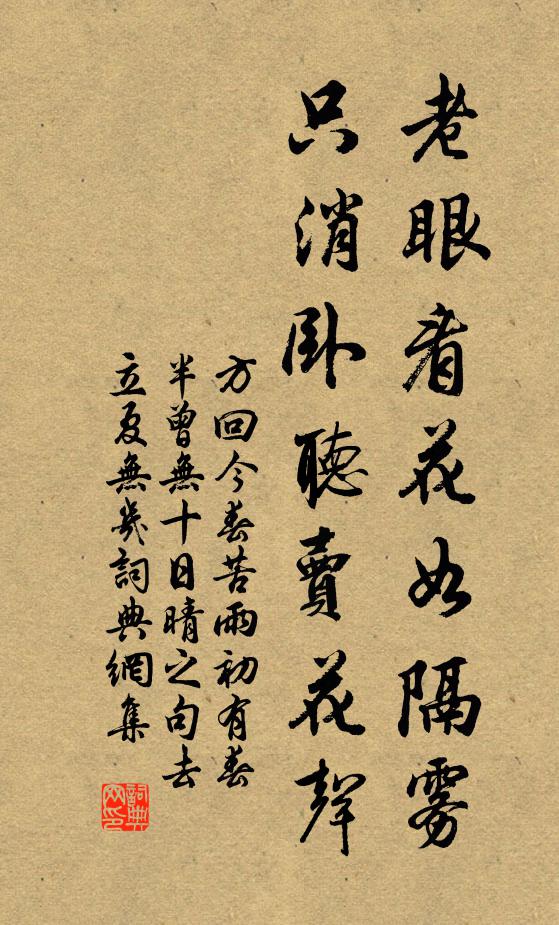 老眼看花如隔雾
只消卧聽賣花聲
方回今春苦雨初有春
半曾無十日晴之句去
立夏無幾詞典網集
詞典網印